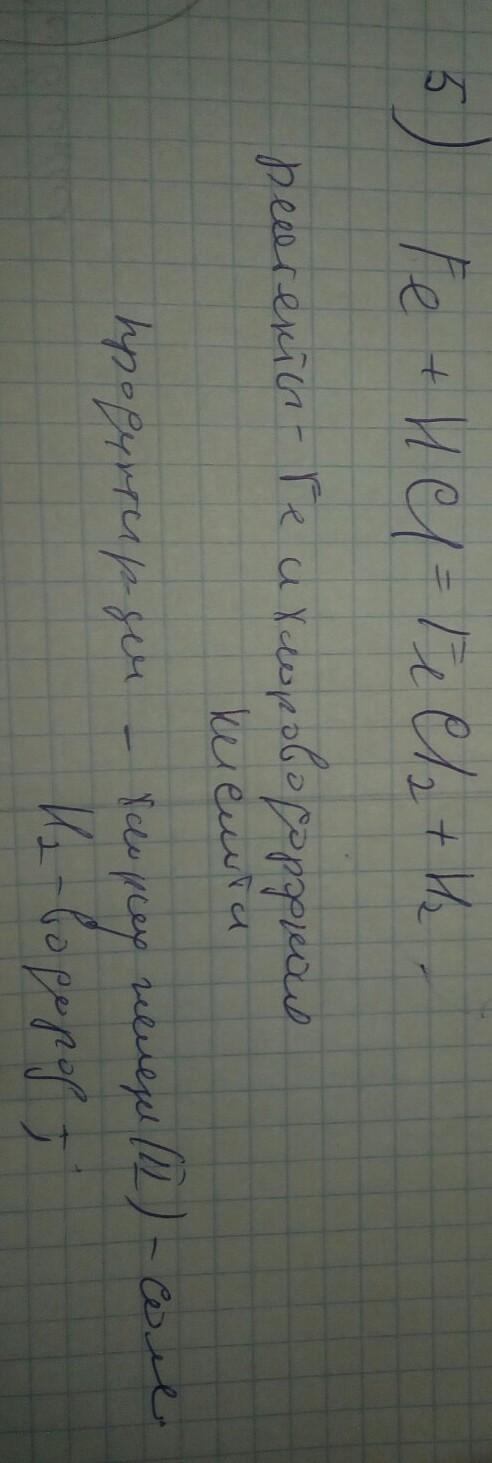 5) Fe + HCl = FeCl₂ + H₂.
реагенты - Fe и хлороводородная
кислота
продукты р-ции - хлорид железа (II) - соль
H₂ - водород ;